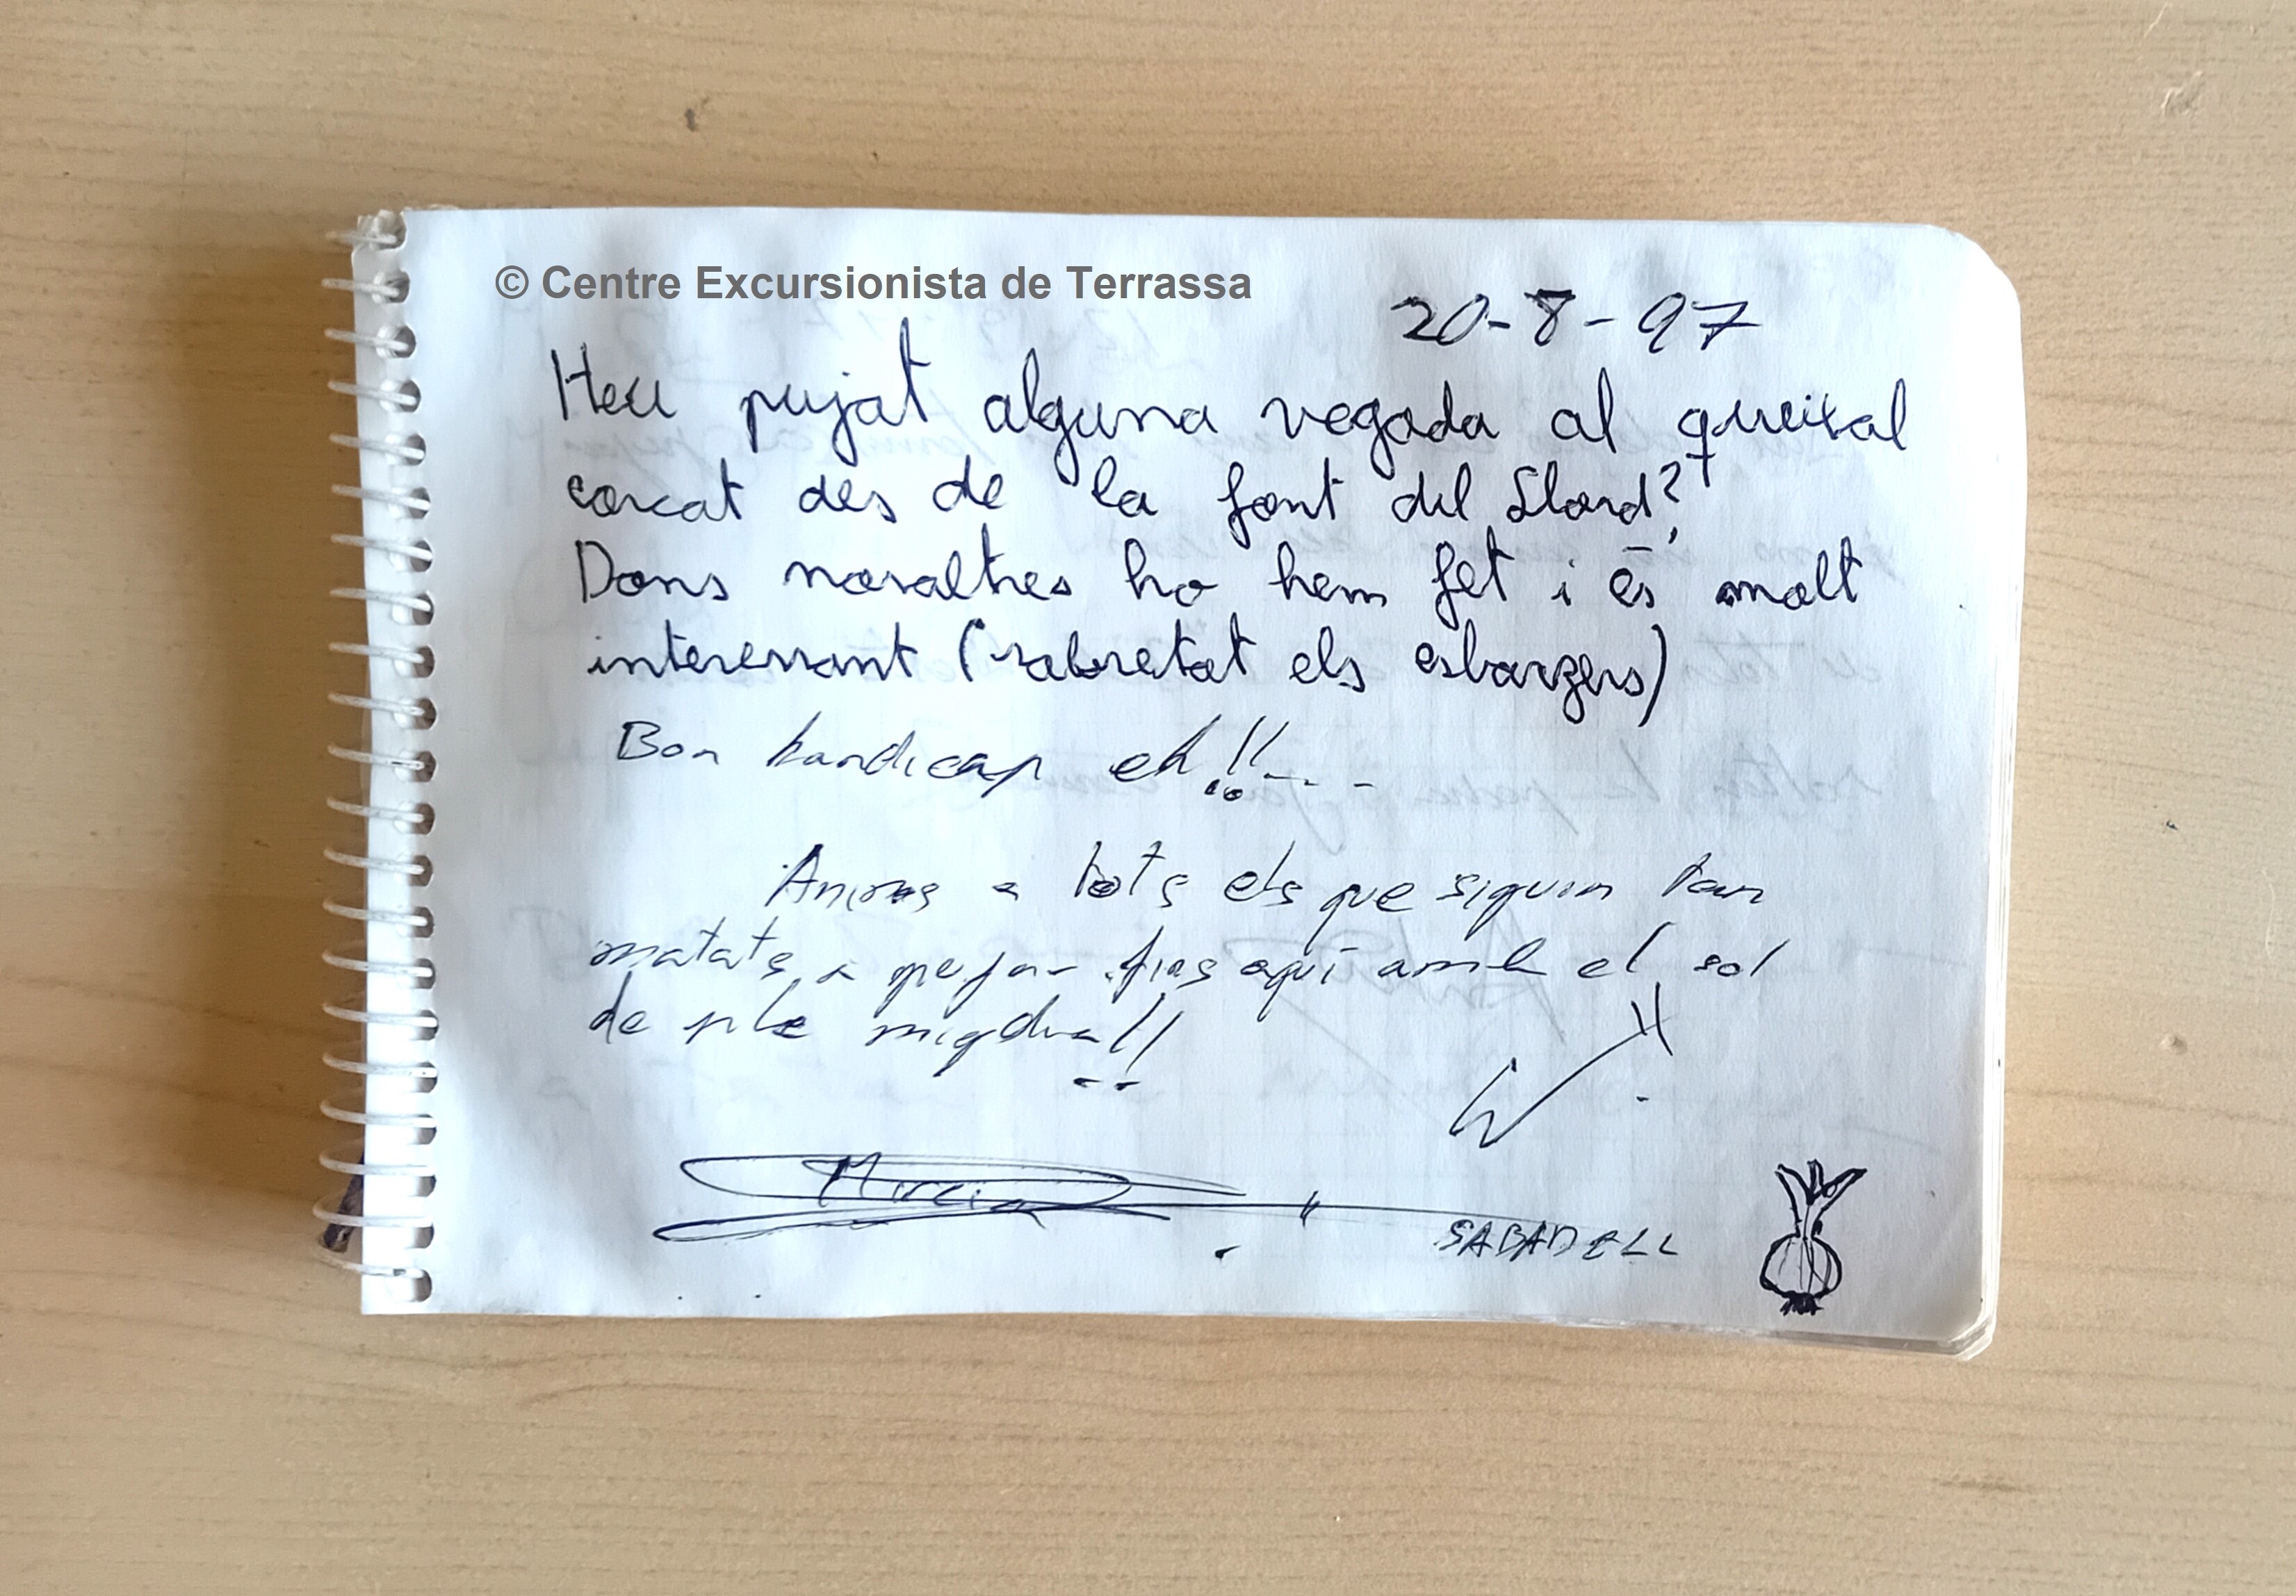 © Centre Excursionista de Terrassa
20-8-97
Heu pujat alguna vegada al queixal
corcat des de la font del Llord?
Dons nosaltres ho hem fet i és molt
interessant (sobretot els esbarzers)
Bon handicap eh!!...
Anims a tots els que siguin tan
matats a pujar fins aquí amb el sol
de ple migdia!!
SABADELL